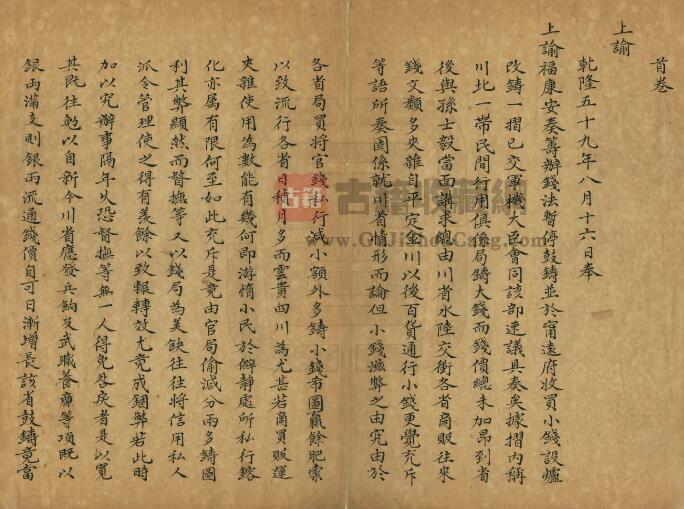 首卷
上諭
乾隆五十九年八月十六日奉
上諭福康安奏籌辦錢法暫停鼓鑄並於甯遠府收買小錢設爐
改鑄一摺已交軍機大臣會同該部速議具奏矣據摺內稱
川北一帶民間行用俱係局鑄大錢而錢價總未加昂到省
後與孫士毅當面講求總由川省水陸交衝各省商販往來
錢文類多夾雜自平定金川以後百貨通行小錢更覺充斥
等語所奏固係就川省情形而論但小錢滋弊之由究由於
各省局員將官錢私行減小額外多鑄小錢希圖贏餘肥橐
以致流行各省日積月多而雲貴四川為尤甚若商賈販運
夾雜使用為數能有幾何即游惰小民於僻靜處所私行鎔
化亦屬有限何至如此充斥是竟由官局偷減分兩多鑄圖
利其弊顯然而督撫等又以錢局為美缺往往將信用私人
派令管理使之得有羨餘以致輾轉效尤竟成錮弊若此時
加以究辦事隔年久恐督撫等無一人得免咎戾者是以寬
其既往勉以自新今川省應發兵餉及武職養廉等項既以
銀兩滿支則銀兩流通錢價自可日漸增長該省鼓鑄竟當
古籍
古書收藏網
www.GuJiShouCang.com